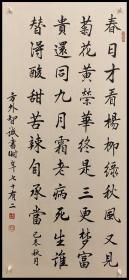 春日才看楊柳綠秋風又見
菊花黄榮華終是三更夢富
貴還同九月霜老病死生誰
替得酸甜苦辣自承當 己亥秋月
方外智誠書時年七十有二